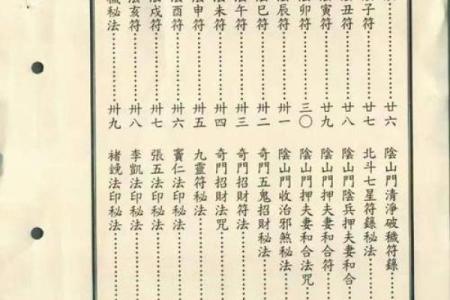 廿六
子符……廿七
丑符……廿八
寅符……廿九
卯符……三〇
辰符……卅一
巳符……卅二
午符……卅三
未符……卅四
申符……卅五
酉符……卅六
戌符……卅七
亥符……卅八
秘法……卅九
陰山門清淨破穢符籙…
北斗七星符籙秘法……
陰山門陰兵押夫妻和合
陰山門押夫妻和合符…
陰山門押夫妻和合法咒
陰山門收治邪煞秘法…
奇門五鬼招財秘法……
奇門招財符法……
奇門招財法咒……
九靈符秘法……
竇仁法印秘法……
張五法印秘法……
李凱法印秘法……
褚詵法印秘法……